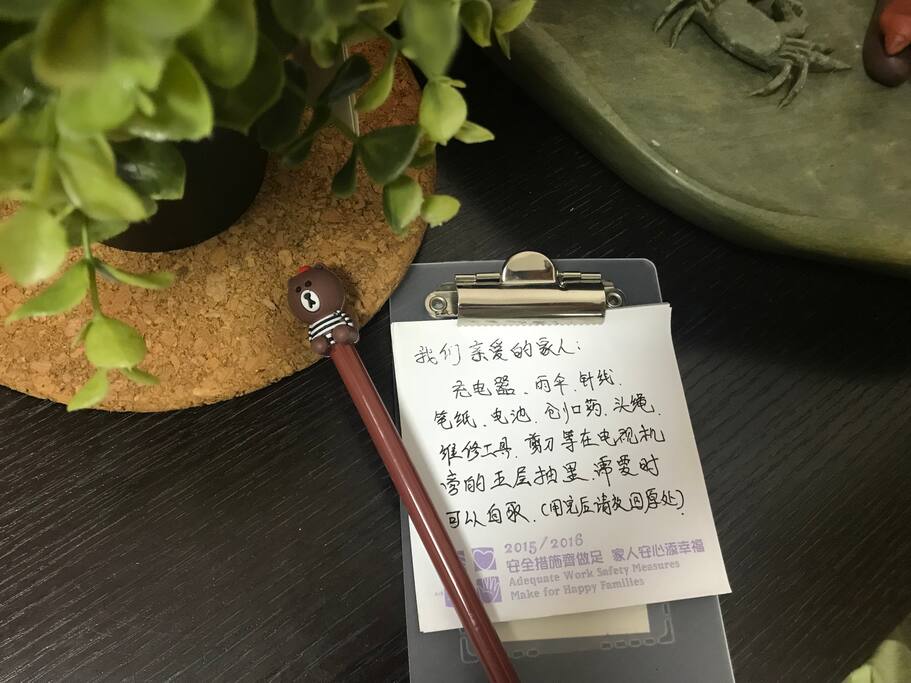 我们亲爱的家人：
充电器、雨伞、针线、
笔纸、电池、创口药、头绳、
维修工具、剪刀等在电视机
旁的五层抽里、需要时
可以自取、(用完后请放回原处)
2015/2016
安全措施齊做足 家人安心添幸福
Adequate Work Safety Measures
Make for Happy Families